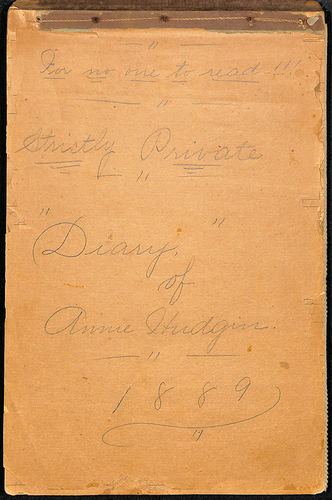 For no one to read !!!
Strictly Private
"Diary"
of
Annie Hudgin.
1889